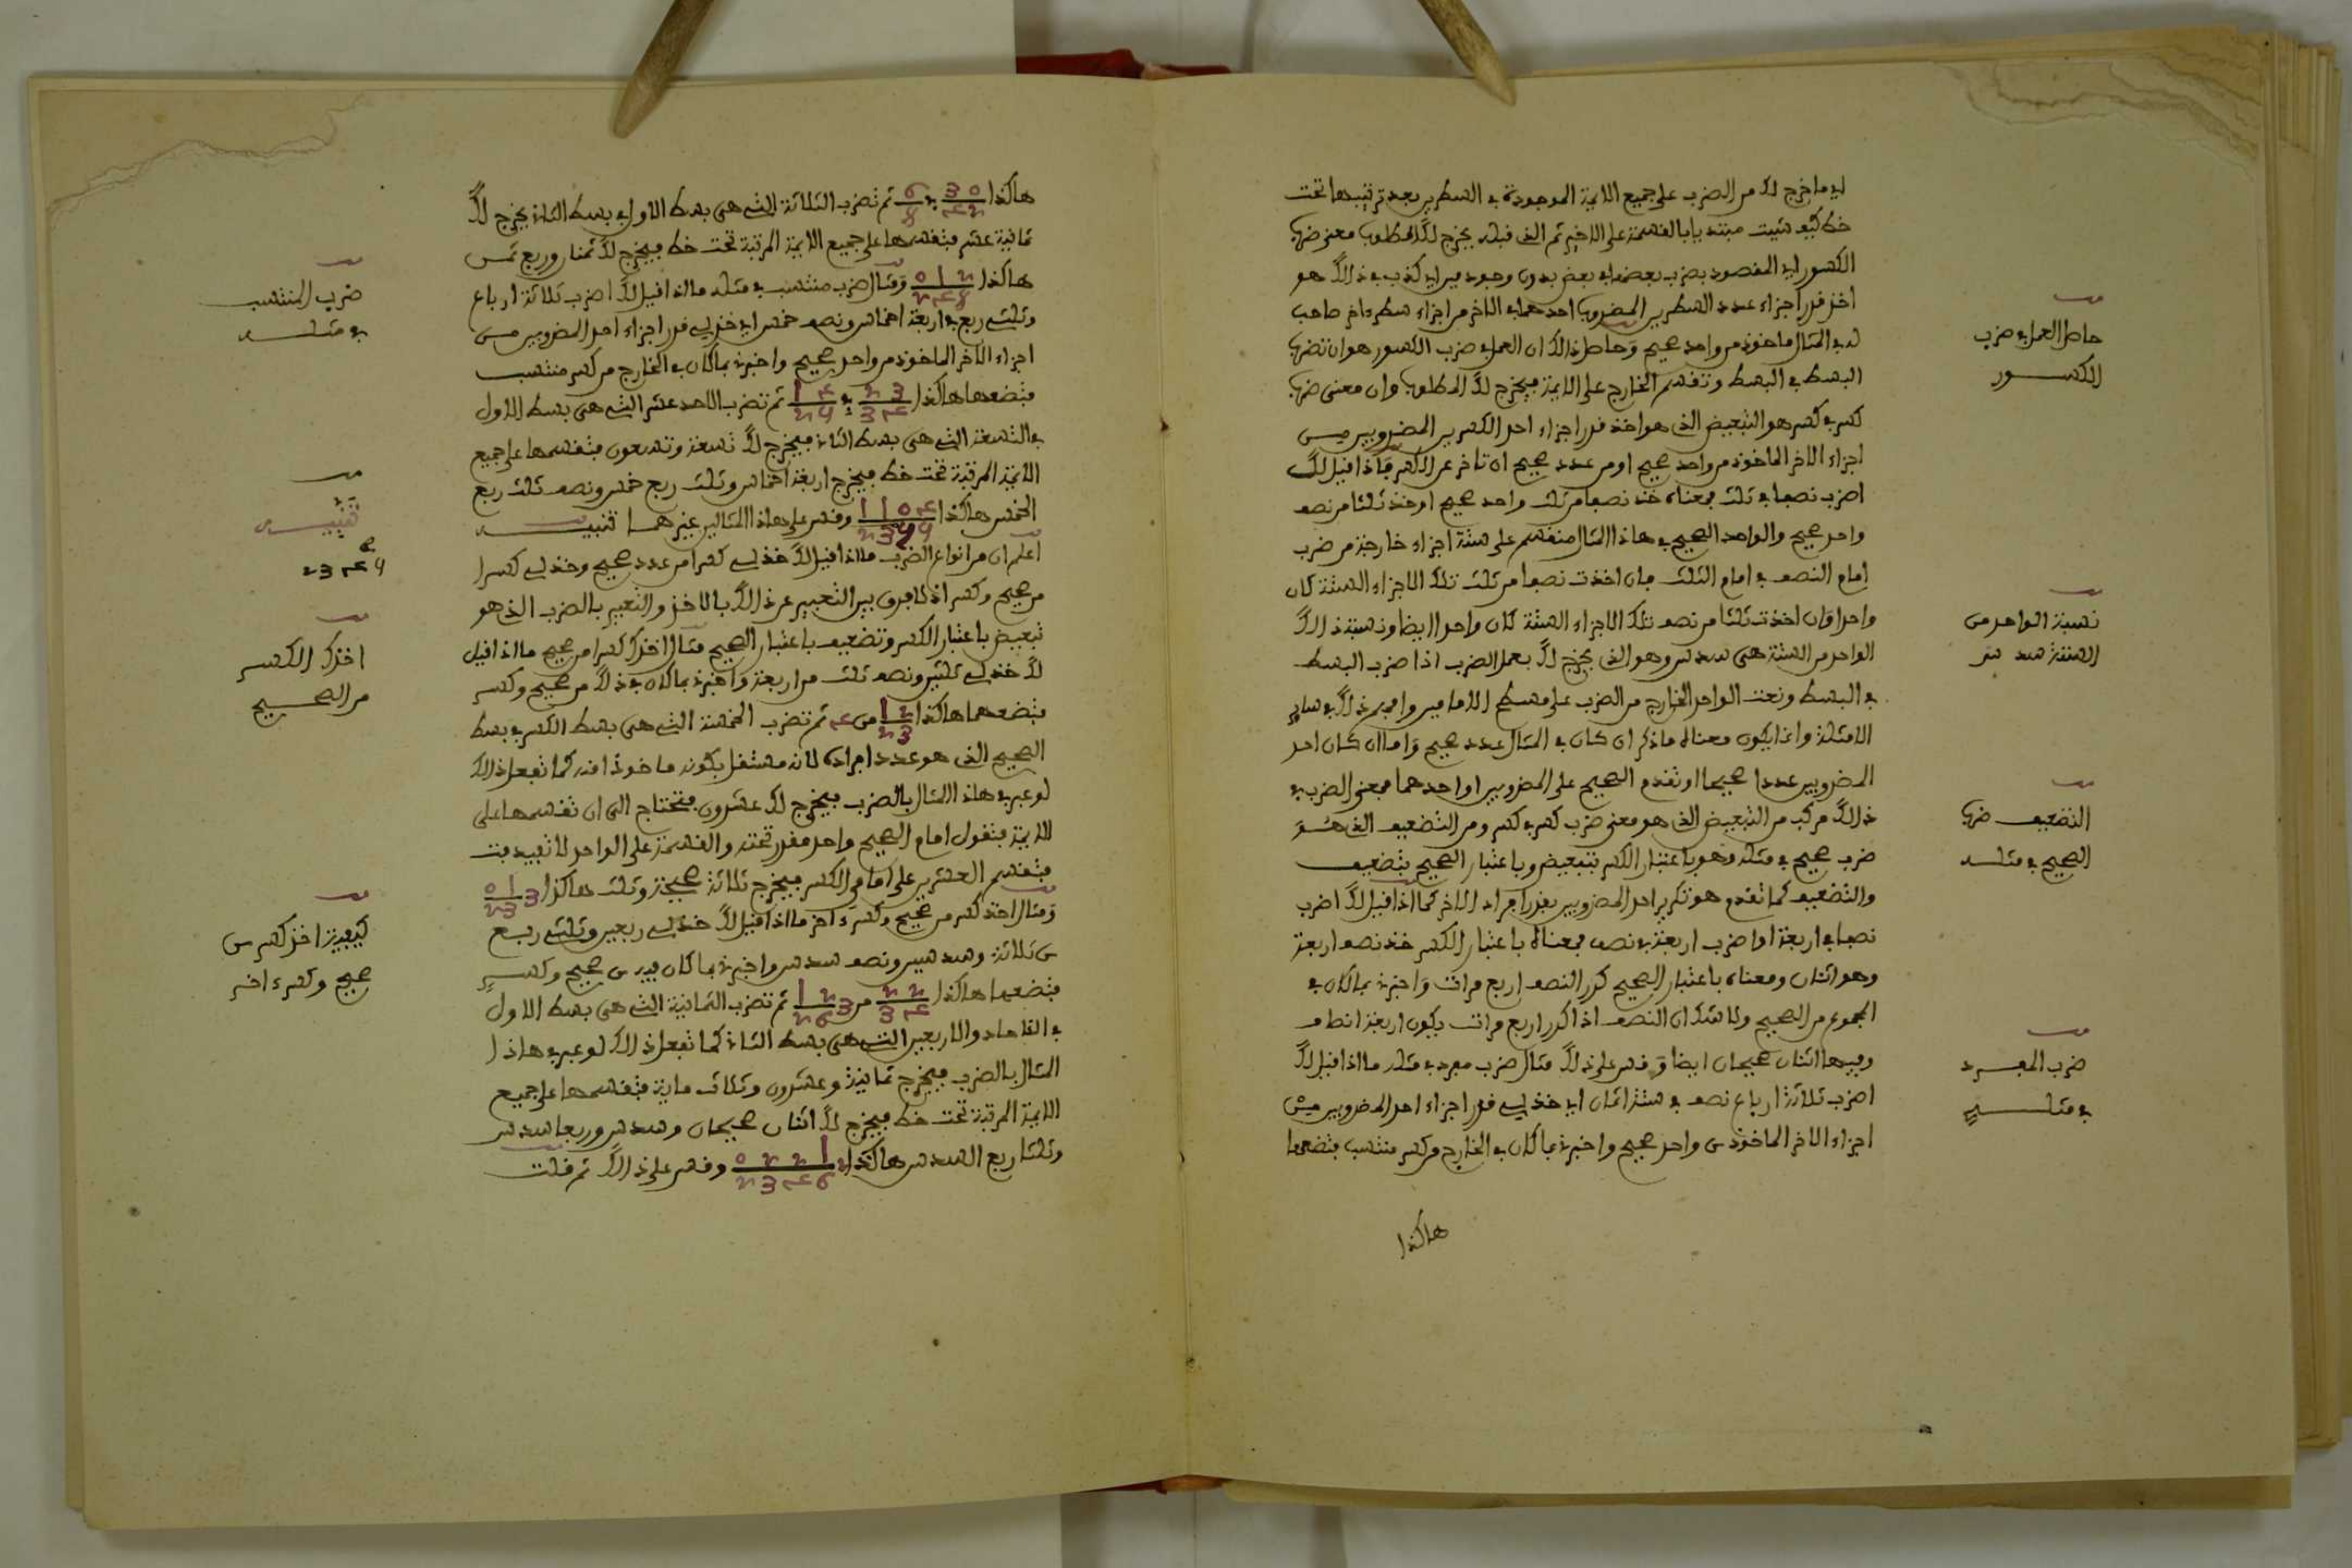 اي ما خرج لك من الضرب على جميع الايمة الموجودة في السطرين بعد ترتيبها تحت
خط كيف شيت مبتديا بالقسمة على الاخير ثم الذي قبله يخرج لك المطلوب معنى ضرب
الكسور اي المقصود بضرب بعضها في بعض بدون وجود في ذالك هو
اخذ قدر اجزاء عدد السطرين المضروب احدهما في الاخر من اجزاء سطر ءاخر صاحب
له في المثال ماخوذ من واحد صحيح وحاصل ذالك ان العمل في ضرب الكسور هو ان تضرب
البسط في البسط وتقسم الخارج على الايمة فيخرج لك المطلوب وان معنى ضرب
كسر في كسر هو التبعيض الذي هو اخذ قدر اجزاء احد الكسرين المضروبين من
اجزاء الاخر الماخوذ من واحد صحيح او من عدد صحيح ان تاخر عن الكسر فاذا قيل لك
اضرب نصفا في ثلث فمعناه خذ نصفا من ثلث واحد صحيح او خذ ثلثا من نصف
واحد صحيح والواحد الصحيح في هاذا المثال منقسم على ستة اجزاء خارجة من ضرب
امام النصف في امام الثلث فان اخذت نصفا من ثلث تلك الاجزاء الستة كان
واحدا وان اخذت ثلثا من نصف تلك الاجزاء الستة كان واحدا ايضا ونسبة ذالك
الواحد من الستة هي سدس وهو الذي يخرج لك بعمل الضرب اذا ضرب البسط
في البسط ونسبت الواحد الخارج من الضرب على مسطح الامامين واجر ذلك في ساير
الامثلة وانما يكون معناه ما ذكر ان كان في المثال عدد صحيح واما ان كان احد
المضروبين عددا صحيحا او تقدم الصحيح على المضروبين او احدهما فمعنى الضرب في
ذالك مركب من التبعيض الذي هو معنى ضرب كسر في كسر ومن التضعيف الذي هو
ضرب صحيح في مثله وهو باعتبار الكسر تبعيض وباعتبار الصحيح تضعيف
والتضعيف كما تقدم هو تكرير احد المضروبين بقدر افراد الاخر كما اذا قيل لك اضرب
نصفا في اربعة او اضرب اربعة في نصف فمعناه باعتبار الكسر خذ نصف اربعة
وهو اثنان ومعناه باعتبار الصحيح كرر النصف اربع مرات واخبرني بما كان في
المجموع من الصحيح ولا شك ان النصف اذا كرر اربع مرات يكون اربعة انصاف
وفيها اثنان صحيحان ايضا وقس على ذلك مثال ضرب مفرد في مثله ما اذا قيل لك
اضرب ثلاثة ارباع نصف في ستة اثمان اي خذ لي قدر اجزاء احد المضروبين من
اجزاء الاخر الماخوذ من واحد صحيح واخبرني بما كان في الخارج من كسر منتسب فتضعهما
هاكذا
حاصل العمل في ضرب
الكسور
نسبة الواحد من
الستة سدس
التضعيف ضرب
الصحيح في مثله
ضرب المفرد
في مثله
هاكذا 3 0 / 4 2 في 6 / 8 ثم تضرب الثلاثة التي هي بسط الاول في بسط الثاني يخرج لك
ثمانية عشر فتقسمها على جميع الايمة المرتبة تحت خط فيخرج لك ثمنان وربع ثمن
هاكذا 2 1 0 / 8 4 2 ومثال ضرب منتسب في مثله ما اذا قيل لك اضرب ثلاثة ارباع
وثلثي ربع في اربعة اخماس ونصف خمس اي خذ لي قدر اجزاء احد المضروبين من
اجزاء الاخر الماخوذ من واحد صحيح واخبرني بما كان في الخارج من كسر منتسب
فتضعها هاكذا 3 2 / 4 3 في 4 1 / 5 2 ثم تضرب الاحد عشر التي هي بسط الاول
في التسعة التي هي بسط الثاني فيخرج لك تسعة وتسعون فتقسمها على جميع
الايمة المرتبة تحت خط فيخرج اربعة اخماس وثلث ربع خمس ونصف ثلث ربع
الخمس هاكذا 4 0 1 1 / 5 4 3 2 وقس على هاذا المثالين غيرهما تنبيه
اعلم ان من انواع الضرب ما اذا قيل لك خذ لي كسرا من عدد صحيح وخذ لي كسرا
من صحيح وكسر اذ لا فرق بين التعبير عن ذالك بالاخذ والتعبير بالضرب الذي هو
تبعيض باعتبار الكسر وتضعيف باعتبار الصحيح مثال اخذك كسرا من صحيح ما اذا قيل
لك خذ لي ثلثين ونصف ثلث من اربعة واخبرني بما كان في ذلك من صحيح وكسر
فتضعهما هاكذا 2 1 / 3 2 من 4 ثم تضرب الخمسة التي هي بسط الكسر في بسط
الصحيح الذي هو عدد افراده لانه مستقل بكونه ماخوذا منه كما تفعل ذالك
لو عبر في هاذا المثال بالضرب فيخرج لك عشرون فتحتاج الى ان تقسمها على
الايمة فتقول امام الصحيح واحد مقدر تحته والقسمة على الواحد لا تفيد فت
فتقسم العشرين على امامي الكسر فيخرج ثلاثة صحيحة وثلث هاكذا 3 1 0 / 3 2
ومثال اخذ كسر من صحيح وكسر ءاخر ما اذا قيل لك خذ لي ربعين وثلثي ربع
من ثلاثة وسدسين ونصف سدس واخبرني بما كان فيه من صحيح وكسر
فتضعهما هاكذا 2 2 / 4 3 من 3 2 1 / 6 2 ثم تضرب الثمانية التي هي بسط الاول
في الاحاد والاربعين التي هي بسط الثاني كما تفعل ذالك لو عبر في هاذا
المثال بالضرب فيخرج ثمانية وعشرون وثلاث ماية فتقسمها على جميع
الايمة المرتبة تحت خط فيخرج لك اثنان صحيحان وسدس وربعا سدس
وثلثا ربع السدس هاكذا 2 1 2 2 0 / 6 4 3 2 وقس على ذالك ثم قلت
ضرب المنتسب
في مثله
تنبيه
5 4 3 2
اخذك الكسر
من الصحيح
كيفية اخذ كسر من
صحيح وكسر ءاخر